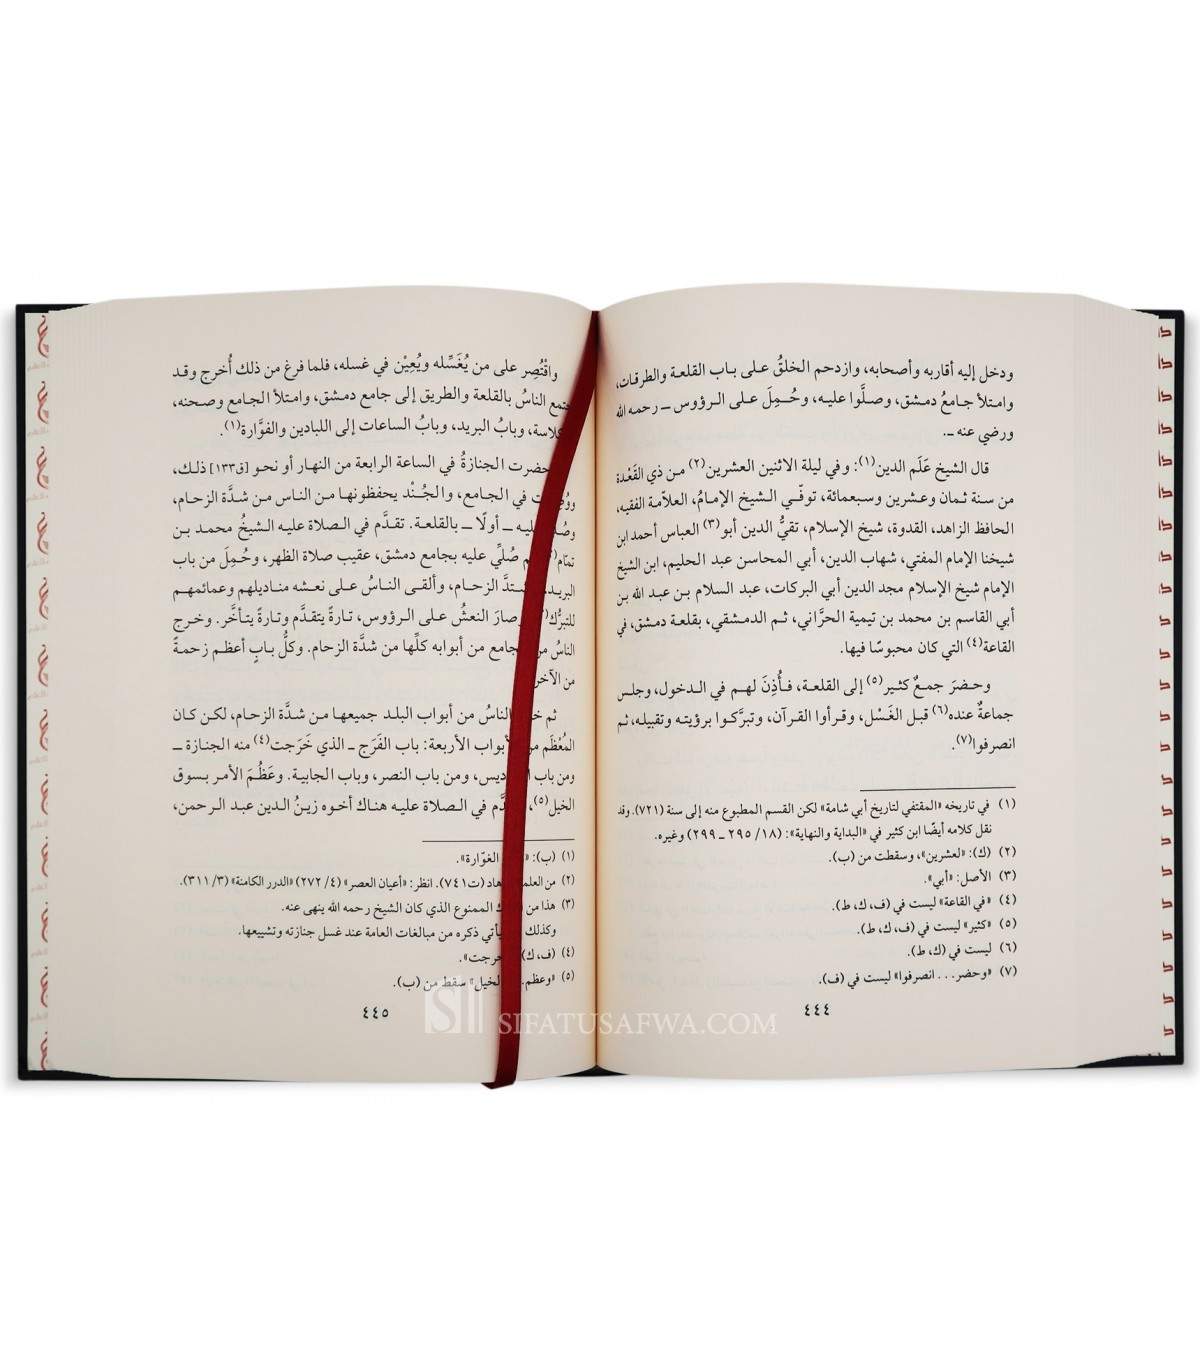 ودخل إليه أقاربه وأصحابه، وازدحم الخلقُ على باب القلعة والطرقات،
وامتلأ جامعُ دمشق، وصلَّوا عليه، وحُمِلَ على الرؤوس ــ رحمه الله
ورضي عنه ــ.
قال الشيخ عَلَم الدين(١): وفي ليلة الاثنين العشرين(٢) من ذي القَعْدة
من سنة ثمان وعشرين وسبعمائة، توفّي الشيخ الإمامُ، العلاّمة الفقيه،
الحافظ الزاهد، القدوة، شيخ الإسلام، تقيُّ الدين أبو(٣) العباس أحمد ابن
شيخنا الإمام المفتي، شهاب الدين، أبي المحاسن عبد الحليم، ابن الشيخ
الإمام شيخ الإسلام مجد الدين أبي البركات، عبد السلام بن عبد الله بن
أبي القاسم بن محمد بن تيمية الحرَّاني، ثم الدمشقي، بقلعة دمشق، في
القاعة(٤) التي كان محبوسًا فيها.
وحضرَ جمعٌ كثير(٥) إلى القلعة، فأُذِنَ لهم في الدخول، وجلس
جماعةٌ عنده(٦) قبل الغَسْل، وقرأوا القرآن، وتبرَّكوا برؤيته وتقبيله، ثم
انصرفوا(٧).
(١) في تاريخه «المقتفي لتاريخ أبي شامة» لكن القسم المطبوع منه إلى سنة (٧٢١). وقد
نقل كلامه أيضًا ابن كثير في «البداية والنهاية»: (١٨/ ٢٩٥ ــ ٢٩٩) وغيره.
(٢) (ك): «لعشرين»، وسقطت من (ب).
(٣) الأصل: «أبي».
(٤) «في القاعة» ليست في (ف، ك، ط).
(٥) «كثير» ليست في (ف، ك، ط).
(٦) ليست في (ك، ط).
(٧) «وحضر... انصرفوا» ليست في (ف).
٤٤٤
واقْتُصِر على من يُغَسِّله ويُعِيْن في غسله، فلما فرغ من ذلك أُخرج وقد
الناسُ بالقلعة والطريق إلى جامع دمشق، وامتلأ الجامع وصحنه،
وبابُ البريد، وبابُ الساعات إلى اللبادين والفوَّارة(١).
حضرت الجنازةُ في الساعة الرابعة من النهار أو نحو [ق١٣٣] ذلك،
في الجامع، والجُنْد يحفظونها من الناس من شدَّة الزحام،
ــ أولًا ــ بالقلعة. تقدَّم في الصلاة عليه الشيخُ محمد بن
تمّام صُلِّي عليه بجامع دمشق، عقيب صلاة الظهر، وحُمِلَ من باب
الزحام، وألقى الناسُ على نعشه مناديلهم وعمائمهم
للتبرُّك وصارَ النعشُ على الرؤوس، تارةً يتقدَّم وتارةً يتأخَّر. وخرج
الناسُ من أبوابه كلِّها من شدَّة الزحام. وكلُّ بابٍ أعظم زحمةً
من الآخر
ثم الناسُ من أبواب البلد جميعها من شدَّة الزحام، لكن كان
المُعْظَم الأبواب الأربعة: باب الفَرَج ــ الذي خَرَجت(٤) منه الجنازة ــ
ومن باب ومن باب النصر، وباب الجابية. وعَظُمَ الأمر بسوق
الخيل(٥)، في الصلاة عليه هناك أخوه زينُ الدين عبد الرحمن،
(١) (ب): الغوّارة».
(٢) من (ت٧٤١). انظر: «أعيان العصر» (٤/ ٢٧٢) «الدرر الكامنة» (٣/ ٣١١).
(٣) هذا من الممنوع الذي كان الشيخ رحمه الله ينهى عنه.
وكذلك ذكره من مبالغات العامة عند غسل جنازته وتشييعها.
(٤) (ف، ك)
(٥) «وعظم... الخيل» سقط من (ب).
٤٤٥
SIFATUSAFWA.COM